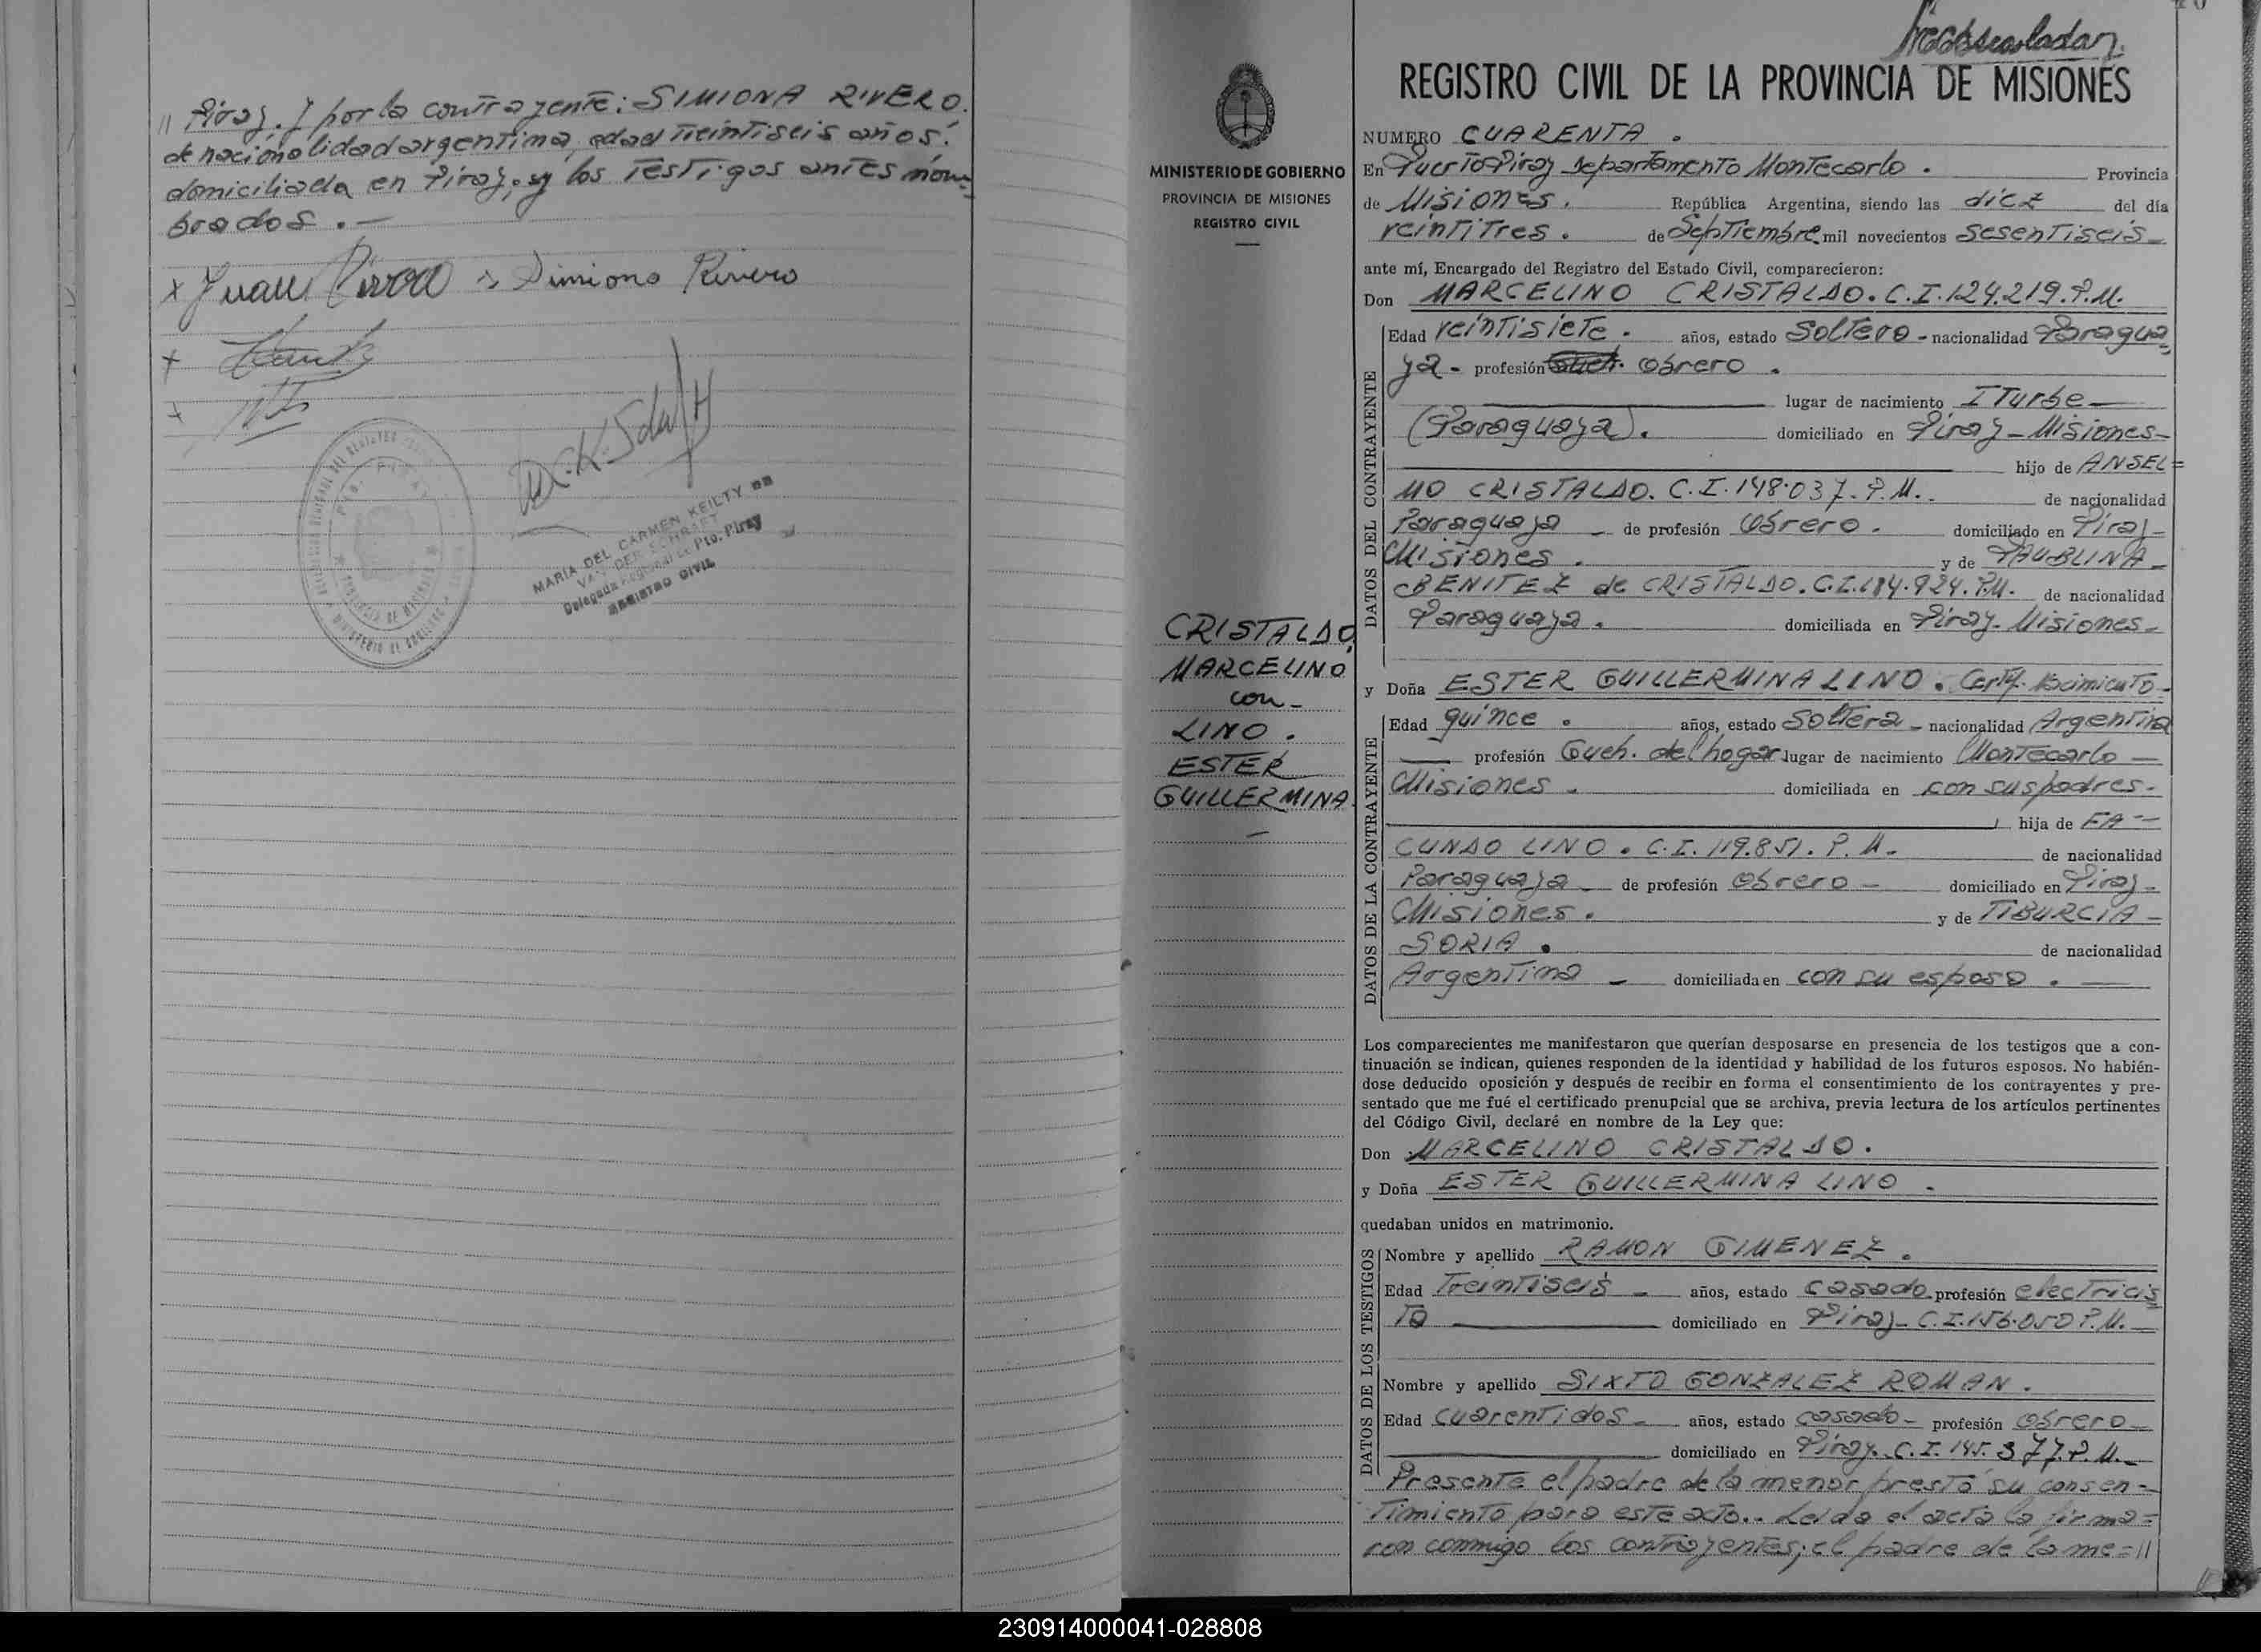 // Piray. Y por la contrayente: SIMIONA RIVERO.
de nacionalidad argentina, edad treintiseis años.
domiciliada en Piray, y los testigos antes nom=
brados. —
x Juan x Simiona Rivero
x
x
MARIA DEL CARMEN KEILTY DE
VAN DER SCHRAFT
Delegada Regional de Pto. Piray
REGISTRO CIVIL
MINISTERIO DE GOBIERNO
PROVINCIA DE MISIONES
REGISTRO CIVIL
CRISTALDO,
MARCELINO
con-
LINO.
ESTER
GUILLERMINA
REGISTRO CIVIL DE LA PROVINCIA DE MISIONES
NUMERO CUARENTA.
En Puerto Piray departamento Montecarlo. Provincia
de Misiones. República Argentina, siendo las diez del día
veintitres. de Septiembre mil novecientos sesentiseis-
ante mí, Encargado del Registro del Estado Civil, comparecieron:
Don MARCELINO CRISTALDO. C.I.124.219.P.M.
DATOS DEL CONTRAYENTE
Edad veintisiete. años, estado soltero - nacionalidad Paragua=
ya - profesión obrero.
lugar de nacimiento ITurbe-
(Paraguaya). domiciliado en Piray-Misiones-
hijo de ANSEL=
MO CRISTALDO. C.I.148.037.P.M.. de nacionalidad
Paraguaya - de profesión Obrero. domiciliado en Piray-
Misiones. y de PAUBLINA-
BENITEZ de CRISTALDO.C.I.184.924.P.M. de nacionalidad
Paraguaya. domiciliada en Piray-Misiones-
y Doña ESTER GUILLERMINA LINO. Certf. Nacimiento-
DATOS DE LA CONTRAYENTE
Edad quince. años, estado Soltera - nacionalidad Argentina
profesión Queh. del hogar lugar de nacimiento Montecarlo-
Misiones. domiciliada en con sus padres.
hija de FA--
CUNDO LINO. C.I. 119.851. P.M. de nacionalidad
Paraguaya - de profesión Obrero - domiciliado en Piray-
Misiones. y de TIBURCIA-
SORIA. de nacionalidad
Argentina - domiciliada en con su esposo.
Los comparecientes me manifestaron que querían desposarse en presencia de los testigos que a con-
tinuación se indican, quienes responden de la identidad y habilidad de los futuros esposos. No habién-
dose deducido oposición y después de recibir en forma el consentimiento de los contrayentes y pre-
sentado que me fué el certificado prenupcial que se archiva, previa lectura de los artículos pertinentes
del Código Civil, declaré en nombre de la Ley que:
Don MARCELINO CRISTALDO.
y Doña ESTER GUILLERMINA LINO.
quedaban unidos en matrimonio.
DATOS DE LOS TESTIGOS
Nombre y apellido RAMON GIMENEZ.
Edad Treintiseis - años, estado casado profesión electricis=
ta domiciliado en Piray-C.I.156.050 P.M.
Nombre y apellido SIXTO GONZALEZ ROMAN.
Edad cuarentidos - años, estado casado - profesión obrero-
domiciliado en Piray. C.I. 145.377.P.M.-
Presente el padre de la menor prestó su consen-
timiento para este acto.. Leida el acta la firma=
ron conmigo los contrayentes; el padre de la me=//
230914000041-028808